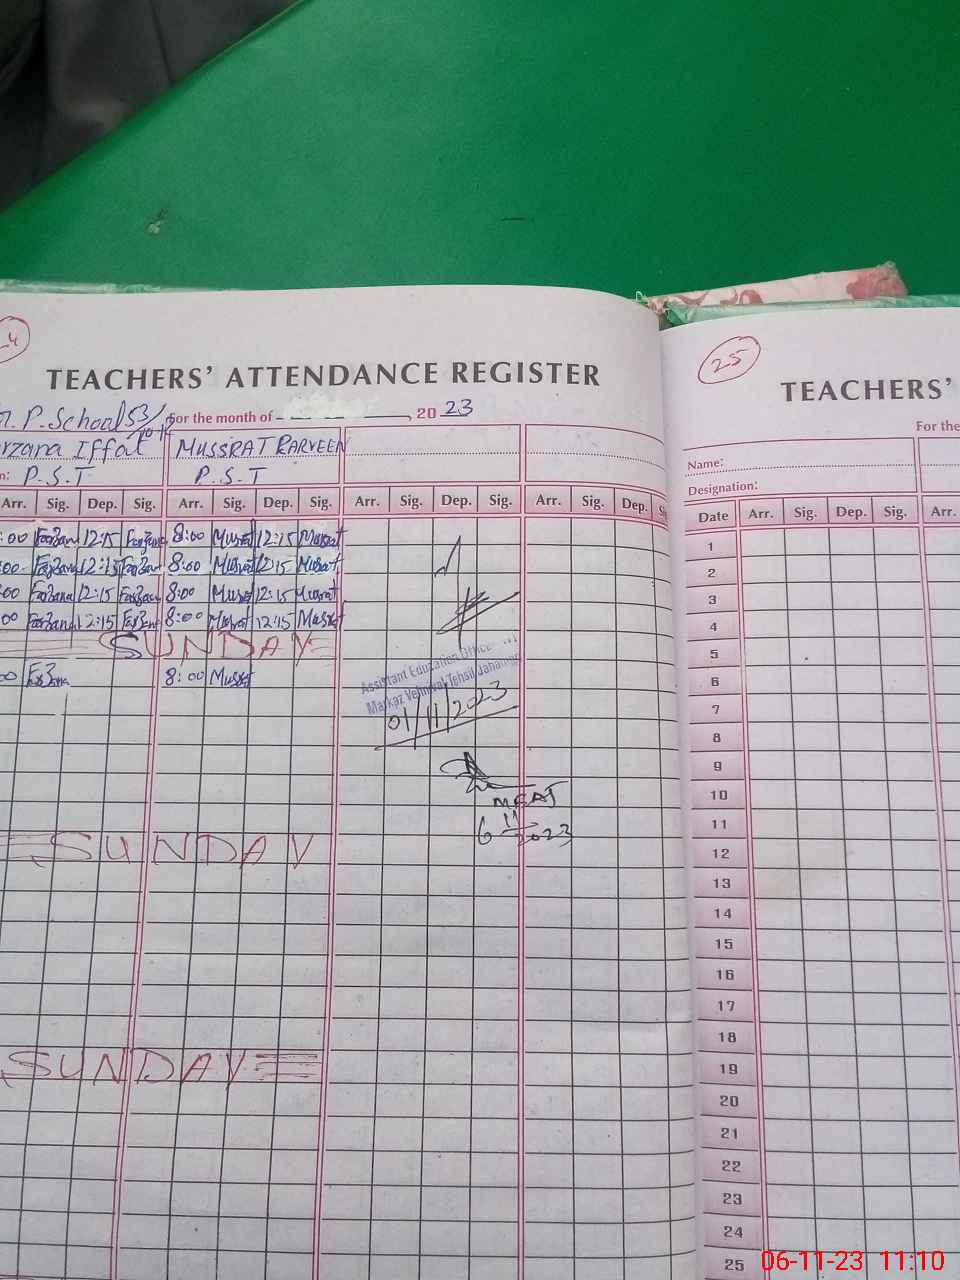 25
TEACHERS' ATTENDANCE REGISTER
P. School 53/
For the month of , 20 23
Iffat MUSSIRAT PARVEEN
P.S.T P.S.T
Arr. Sig. Dep. Sig. Arr. Sig. Dep. Sig. Arr. Sig. Dep. Sig. Arr. Sig. Dep.
:00 Farzana 12:15 Farzana 8:00 Musrat 12:15 Musrat
:00 Farzana 12:15 Farzana 8:00 Musrat 12:15 Musrat
:00 Farzana 12:15 Farzana 8:00 Musrat 12:15 Musrat
00 Farzana 12:15 Farzana 8:00 Musrat 12:15 Musrat
SUNDAY
00 Farzana 8:00 Musrat
Assistant Education
Markaz Tehsil
01/11/2023
6 11 2023
SUNDAY
SUNDAY
TEACHERS'
For the
Name:
Designation:
Date Arr. Sig. Dep. Sig. Arr.
1
2
3
4
5
6
7
8
9
10
11
12
13
14
15
16
17
18
19
20
21
22
23
24
25
06-11-23 11:10